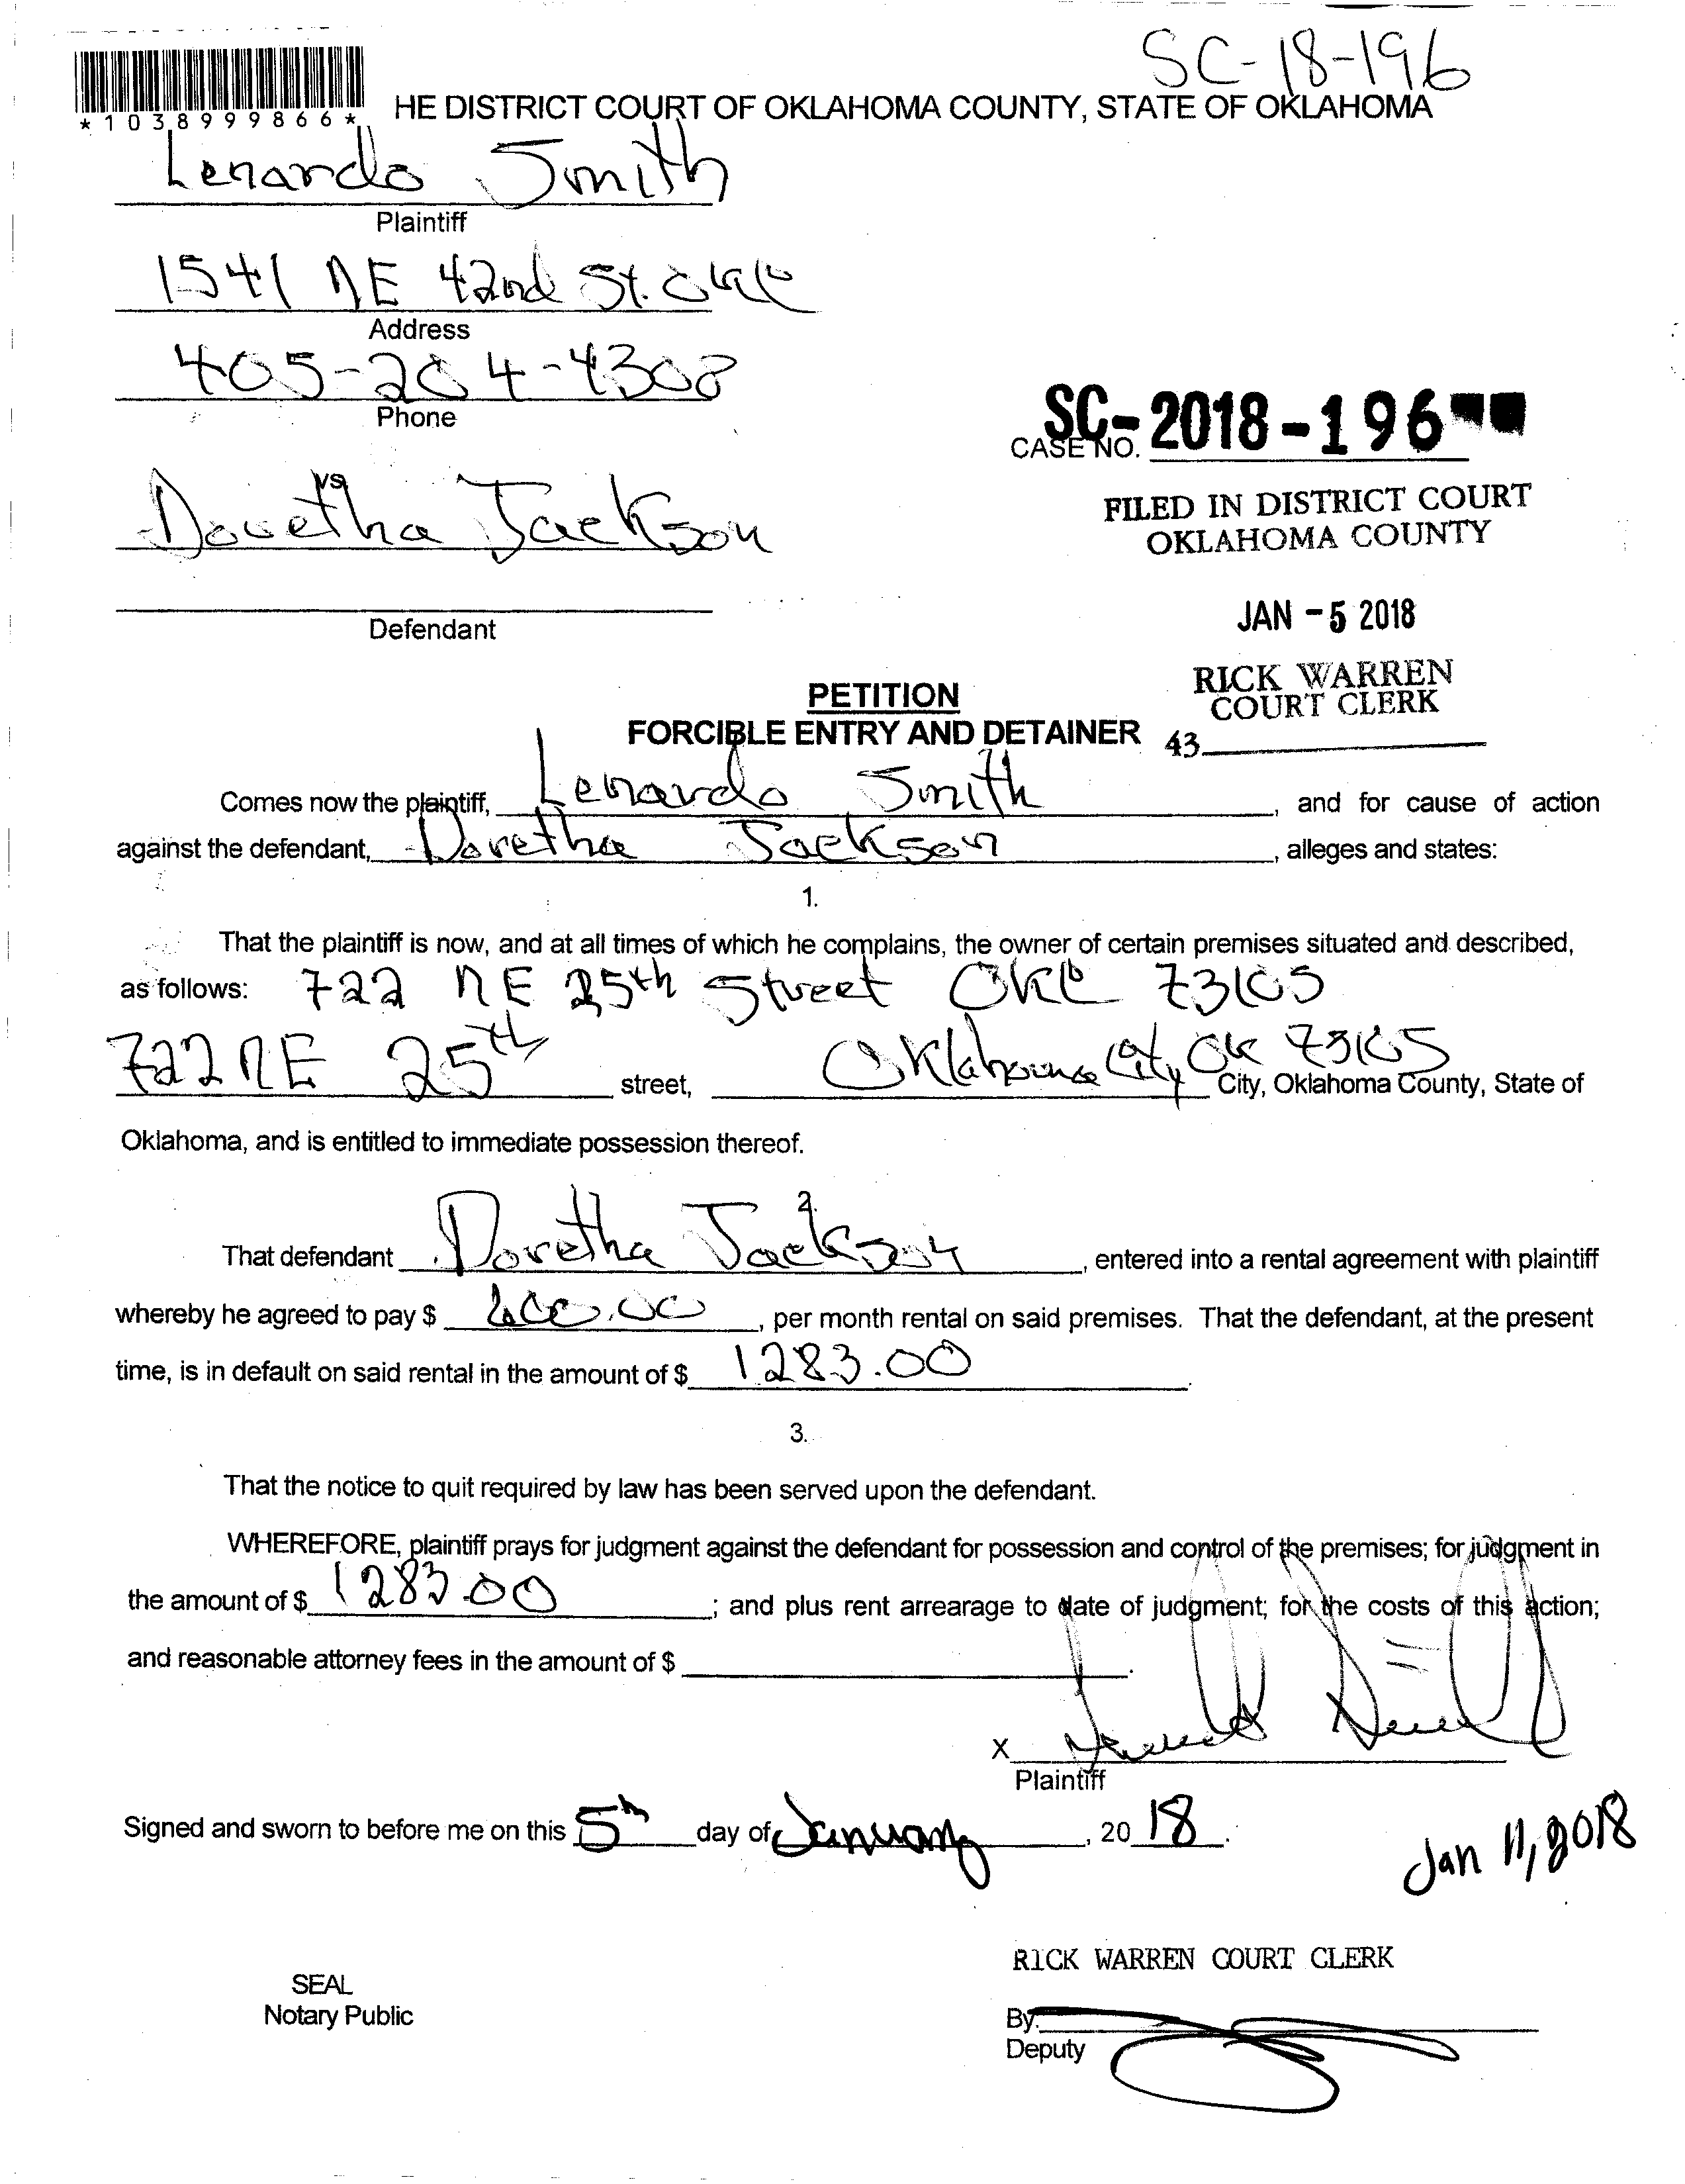 SC-18-196
*1038999866*
HE DISTRICT COURT OF OKLAHOMA COUNTY, STATE OF OKLAHOMA
Lenardo Smith
Plaintiff
1541 NE 42nd St. OKC
Address
405-204-4308
Phone
SC-2018-196
CASE NO.
vs.
Doretha Jackson
FILED IN DISTRICT COURT
OKLAHOMA COUNTY
Defendant
JAN -5 2018
RICK WARREN
COURT CLERK
43
PETITION
FORCIBLE ENTRY AND DETAINER
Comes now the plaintiff, Lenardo Smith, and for cause of action
against the defendant, Doretha Jackson, alleges and states:
1.
That the plaintiff is now, and at all times of which he complains, the owner of certain premises situated and described,
as follows: 722 NE 25th Street OKC 73105
722 NE 25th street, Oklahoma City, OK 73105 City, Oklahoma County, State of
Oklahoma, and is entitled to immediate possession thereof.
2.
That defendant Doretha Jackson, entered into a rental agreement with plaintiff
whereby he agreed to pay $ 600.00, per month rental on said premises. That the defendant, at the present
time, is in default on said rental in the amount of $ 1283.00.
3.
That the notice to quit required by law has been served upon the defendant.
WHEREFORE, plaintiff prays for judgment against the defendant for possession and control of the premises; for judgment in
the amount of $ 1283.00; and plus rent arrearage to date of judgment; for the costs of this action;
and reasonable attorney fees in the amount of $ .
X
Plaintiff
Signed and sworn to before me on this 5th day of January, 2018.
Jan 11, 2018
RICK WARREN COURT CLERK
SEAL
Notary Public
By:
Deputy